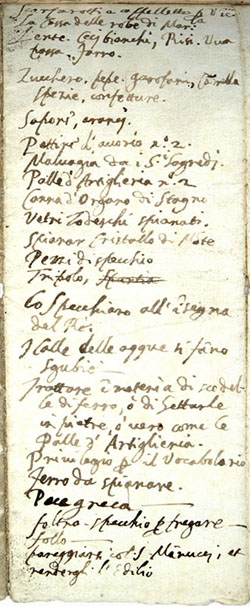 Scarfarotti e cappelletto p Vic.º
La Cassa delle robe di Mar.
Lente. Ceci bianchi, Risi. Uva
passa. Farro.
Zucchero. pepe. garofani, Cannella
spezie, confetture.
Sapori, aranci.
Pettini d'avorio nº. 2.
Malvagia da i S.ri Sagredi.
Palle d'Artiglieria nº. 2
Canna d'Organo di Stagno
Vetri Todeschi spianati.
Spianar Cristallo di Mõte
Pezzi di specchio
Tripolo,
Lo Specchiaro all'ĩsegna
del Rè.
I Calle delle acque si fãno
Sgubie
Trattare ĩ materia di scodel-
le di ferro, ò di Gettarle
in pietre, ò vero come le
Palle d'Artiglieria.
Privilegio p il Vocabolario
Ferro da spianare.
Pece greca
feltro. specchio p fregare
follo
pareggiarsi col S. Manucci, et
rendergli l'Edilio